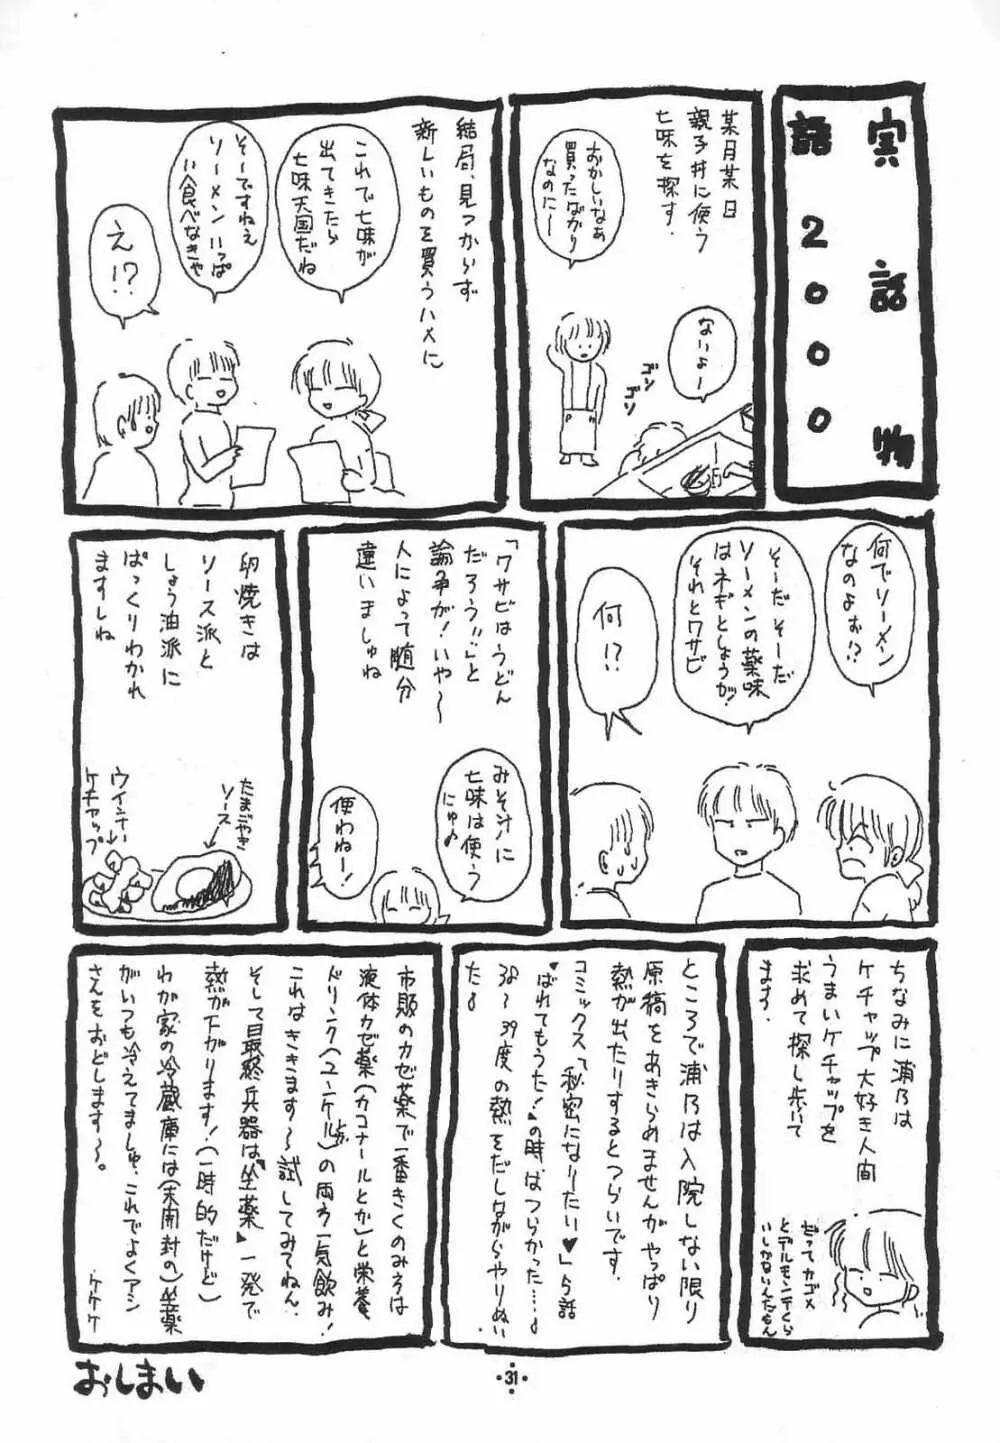 実話物
語2000
某月某日
親子丼に使う
七味を探す.
おかしいなぁ
買ったばかり
なのにー
ないよー
ゴソ
ゴソ
結局、見つからず
新しいものを買うハメに
これで七味が
出てきたら
七味天国だね
そーですねぇ
ソーメンいっぱ
い食べなきゃ
え!?
何でソーメン
なのよぉ!?
そーだそーだ
ソーメンの薬味
はネギとしょうが!
それとワサビ
何!?
「ワサビはうどん
だろう!!」と
論争が!いや〜
人によって随分
違いましゅね
みそ汁に
七味は使う
にゅ♪
使わねー!
卵焼きは
ソース派と
しょう油派に
ぱっくりわかれ
ますしね
たまごやき
ソース
ウインナー
ケチャップ
ちなみに浦乃は
ケチャップ大好き人間
うまいケチャップを
求めて探し歩いて
ます.
だってカゴメ
とデルモンテくら
いしかないんだもん
ところで浦乃は入院しない限り
原稿をあきらめませんがやっぱり
熱が出たりするとつらいです.
コミックス「秘密になりたい♥」5話
♥ばれてもうた!♥の時はつらかった…♪
38〜39度の熱をだしながらやりぬい
た♪
市販のカゼ薬で一番きくのみろは
液体カゼ薬(カコナールとか)と栄養
ドリンク(ユンケルとか)の両方一気飲み!
これはききます〜試してみてねん.
そして最終兵器は"坐薬♥一発で
熱が下がります!(一時的だけど)
わが家の冷蔵庫には(未開封の)坐薬
がいつも冷えてましゅ.これでよくアシ
さんをおどします〜。
ケケケ
おしまい
・31・